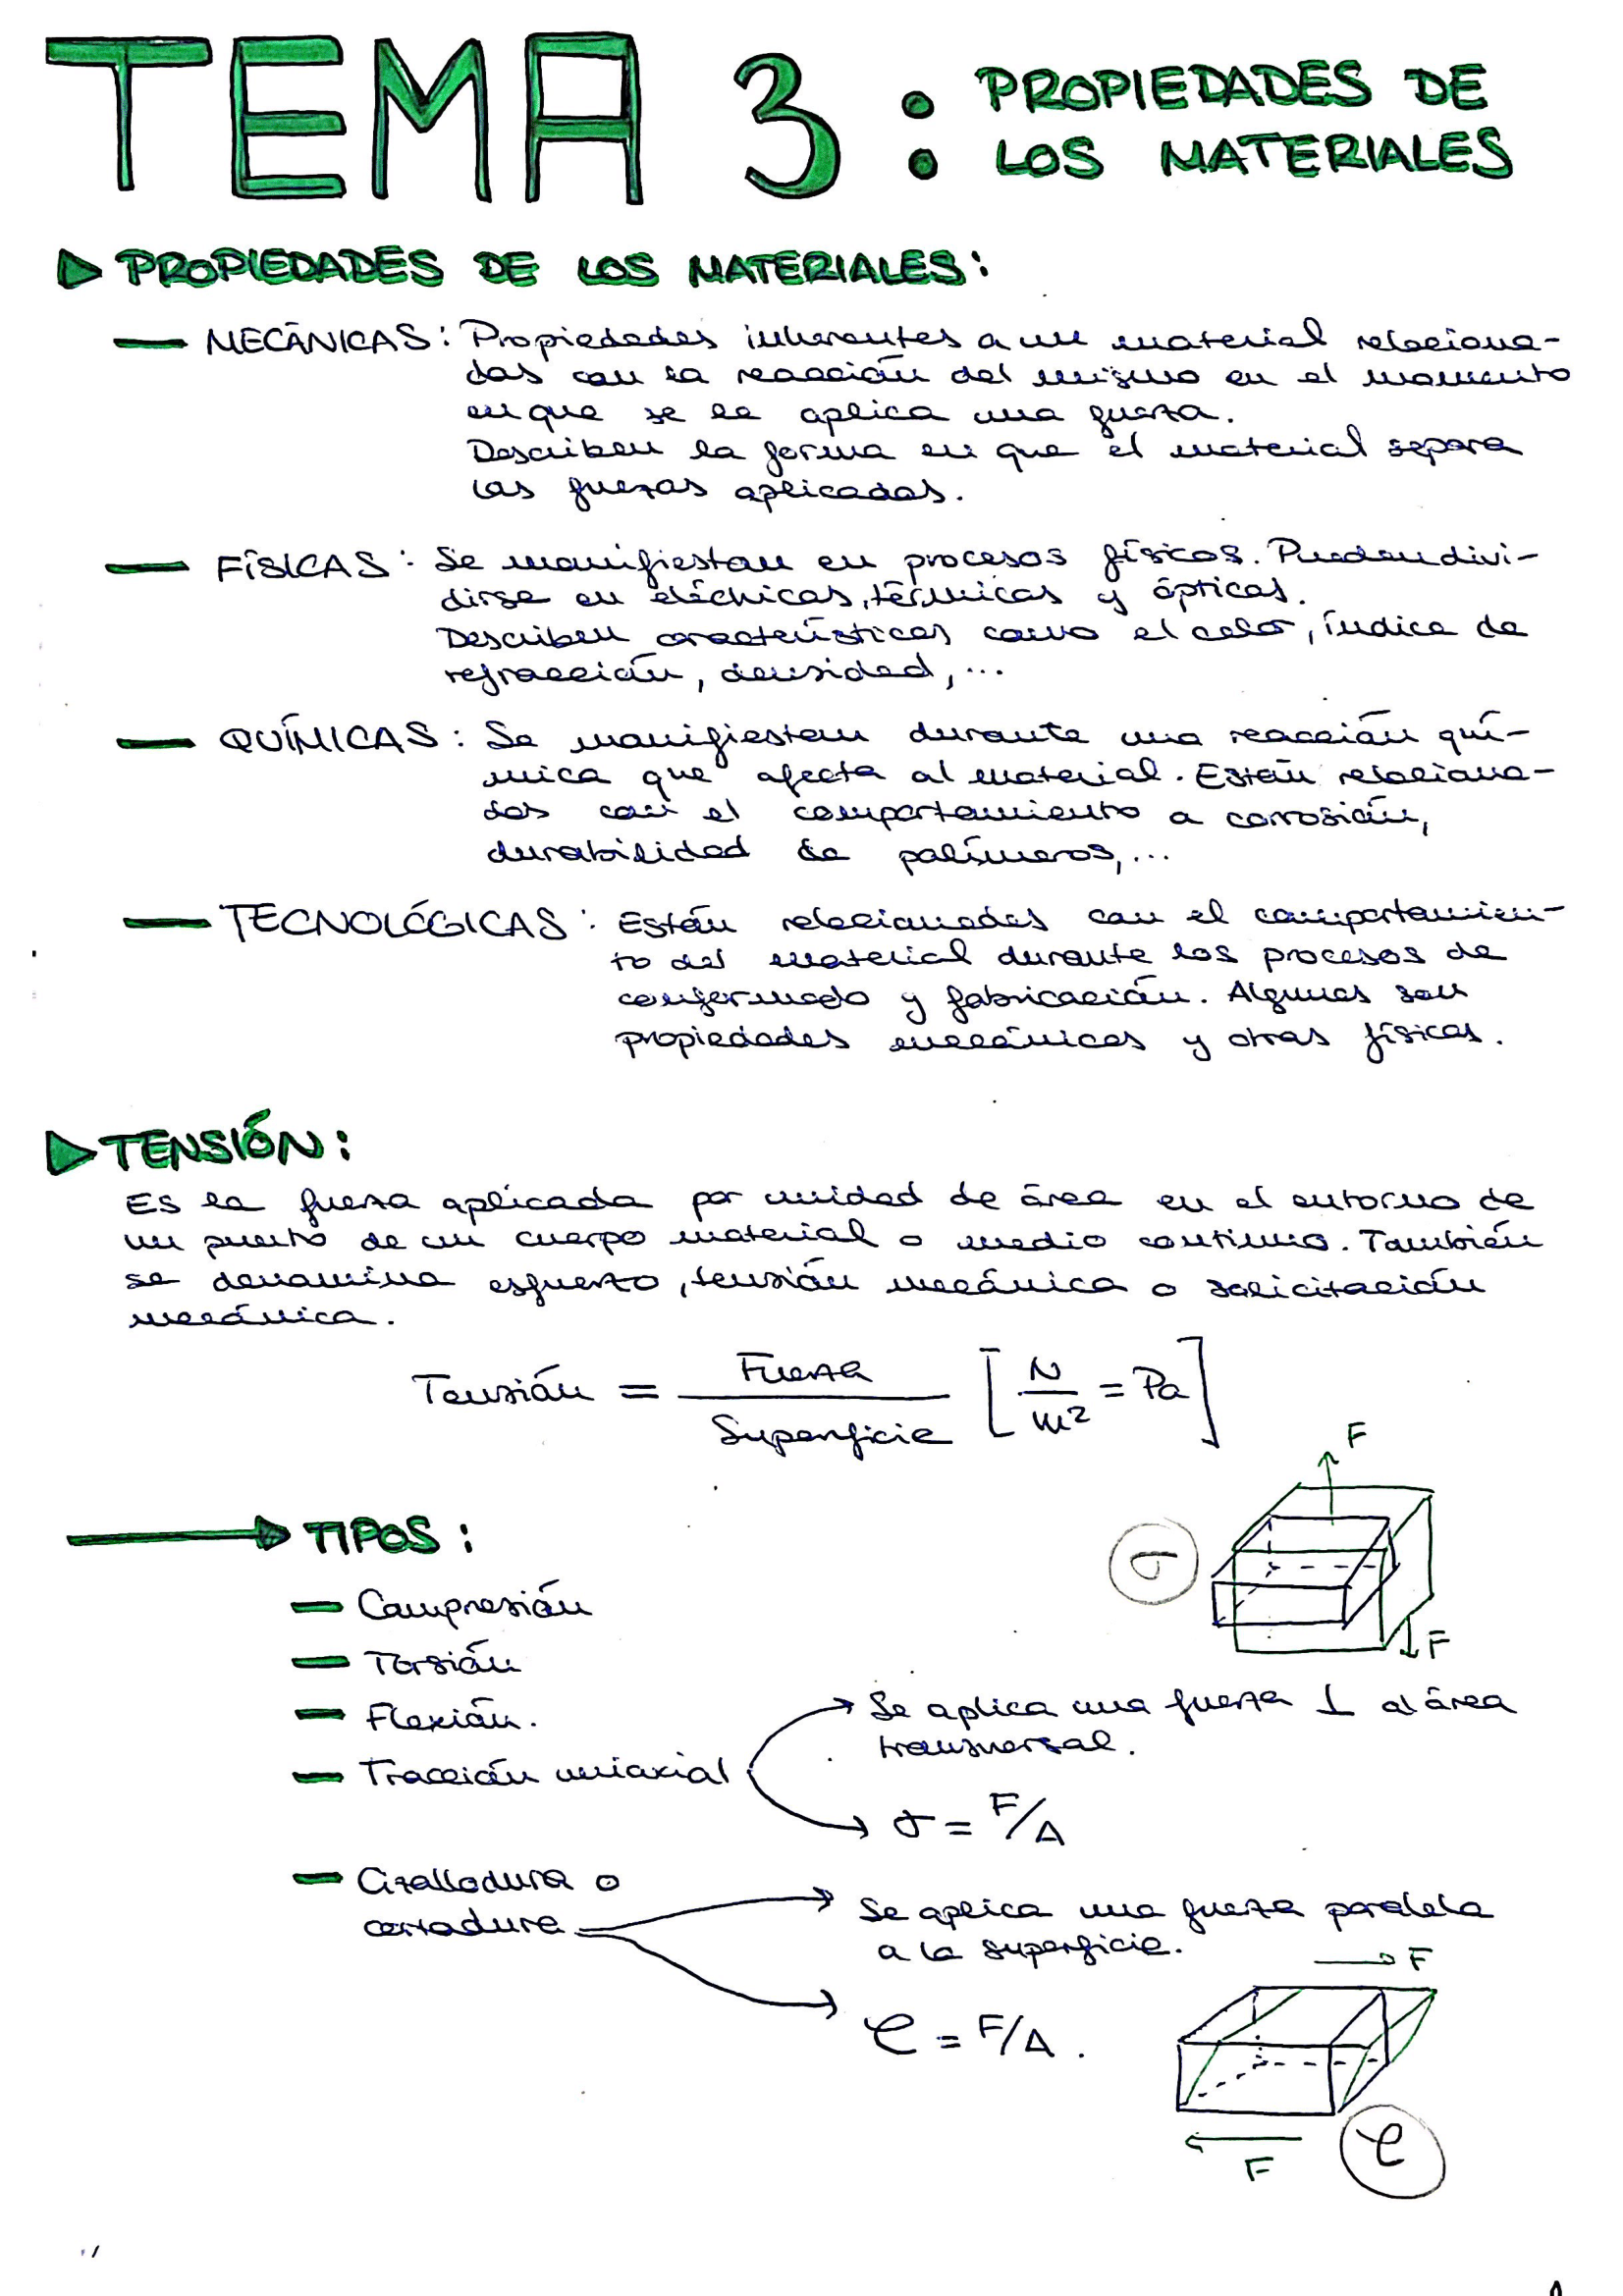 TEMA 3 : PROPIEDADES DE
LOS MATERIALES
PROPIEDADES DE LOS MATERIALES:
— MECÁNICAS: Propiedades inherentes a un material relaciona-
das con la reacción del mismo en el momento
en que se le aplica una fuerza.
Describen la forma en que el material separa
las fuerzas aplicadas.
— FÍSICAS: Se manifiestan en procesos físicos. Pueden divi-
dirse en eléctricas, térmicas y ópticas.
Describen características como el color, índice de
refracción, densidad, ...
— QUÍMICAS: Se manifiestan durante una reacción quí-
mica que afecta al material. Están relaciona-
das con el comportamiento a corrosión,
durabilidad de polímeros, ...
— TECNOLÓGICAS: Están relacionadas con el comportamien-
to del material durante los procesos de
conformado y fabricación. Algunas son
propiedades mecánicas y otras físicas.
TENSIÓN:
Es la fuerza aplicada por unidad de área en el entorno de
un punto de un cuerpo material o medio continuo. También
se denomina esfuerzo, tensión mecánica o solicitación
mecánica.
Tensión = Fuerza / Superficie [N/m² = Pa]
F
TIPOS:
σ
F
— Compresión
— Torsión
— Flexión.
— Tracción uniaxial
Se aplica una fuerza ⊥ al área
transversal.
σ = F/A
— Cizalladura o
cortadura
Se aplica una fuerza paralela
a la superficie.
F
τ = F/A .
F
τ